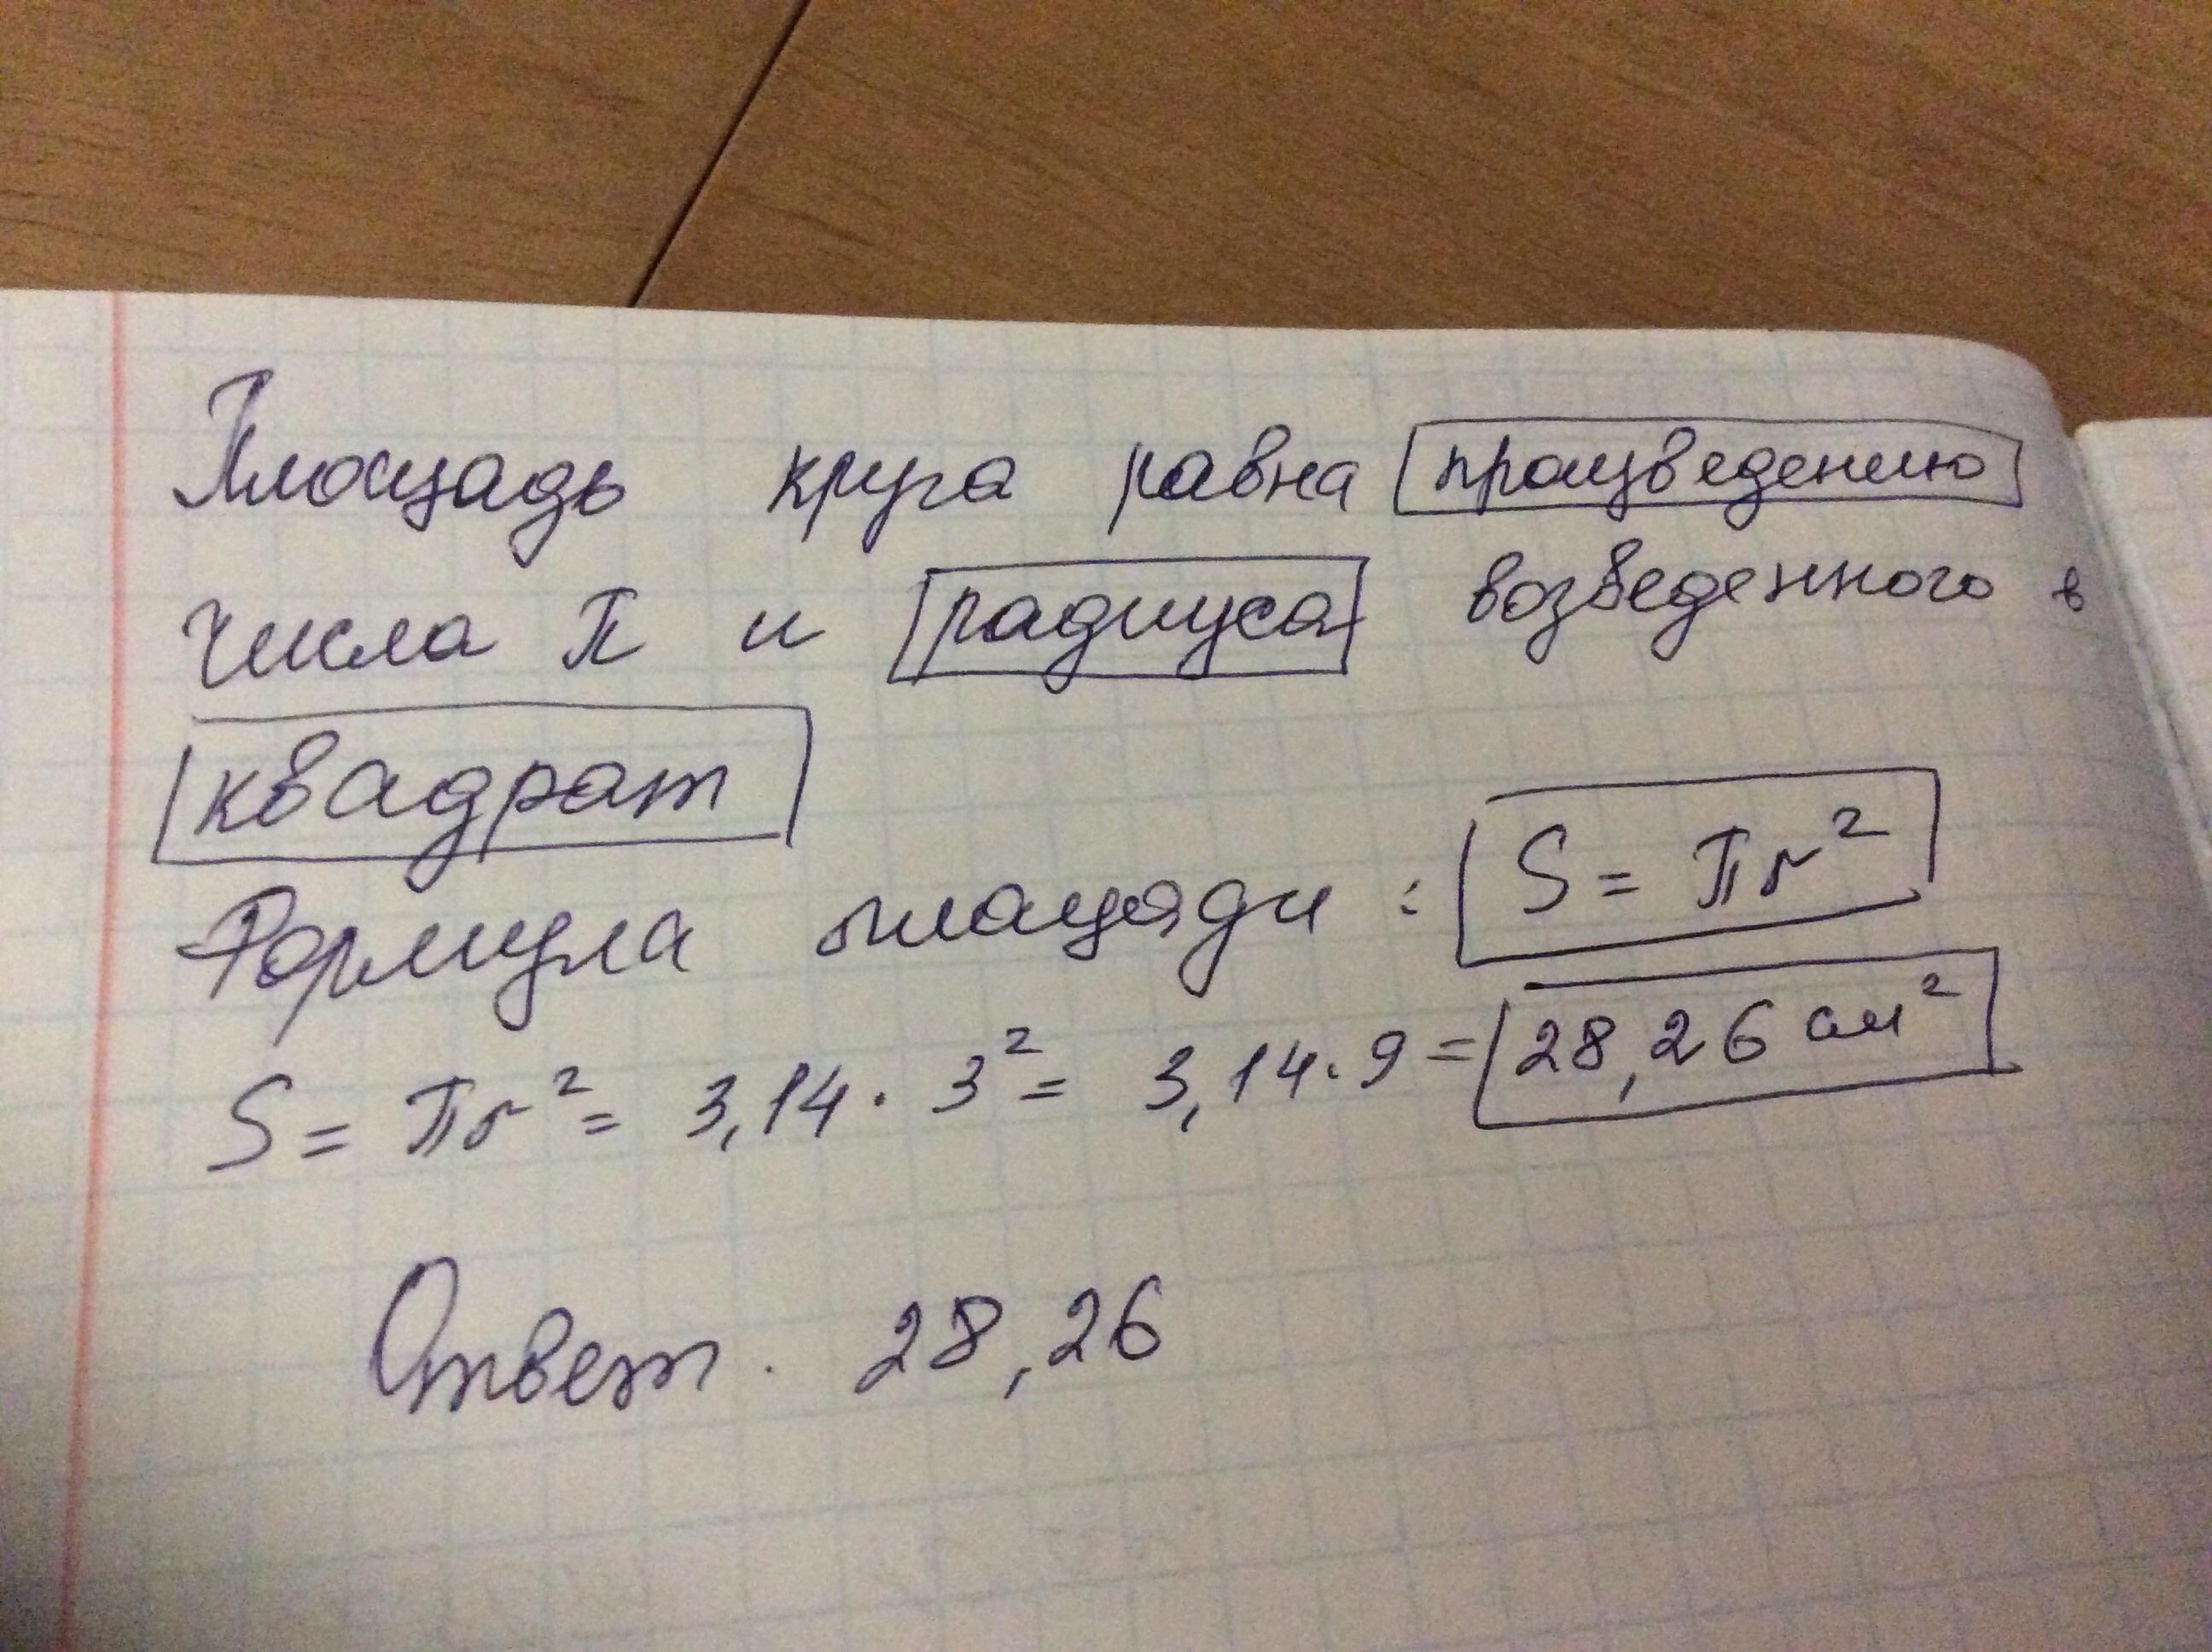 Площадь круга равна произведению
числа π и радиуса возведенного в
квадрат
Формула площади : S = πr²
S = πr² = 3,14 · 3² = 3,14 · 9 = 28,26 см²
Ответ. 28,26